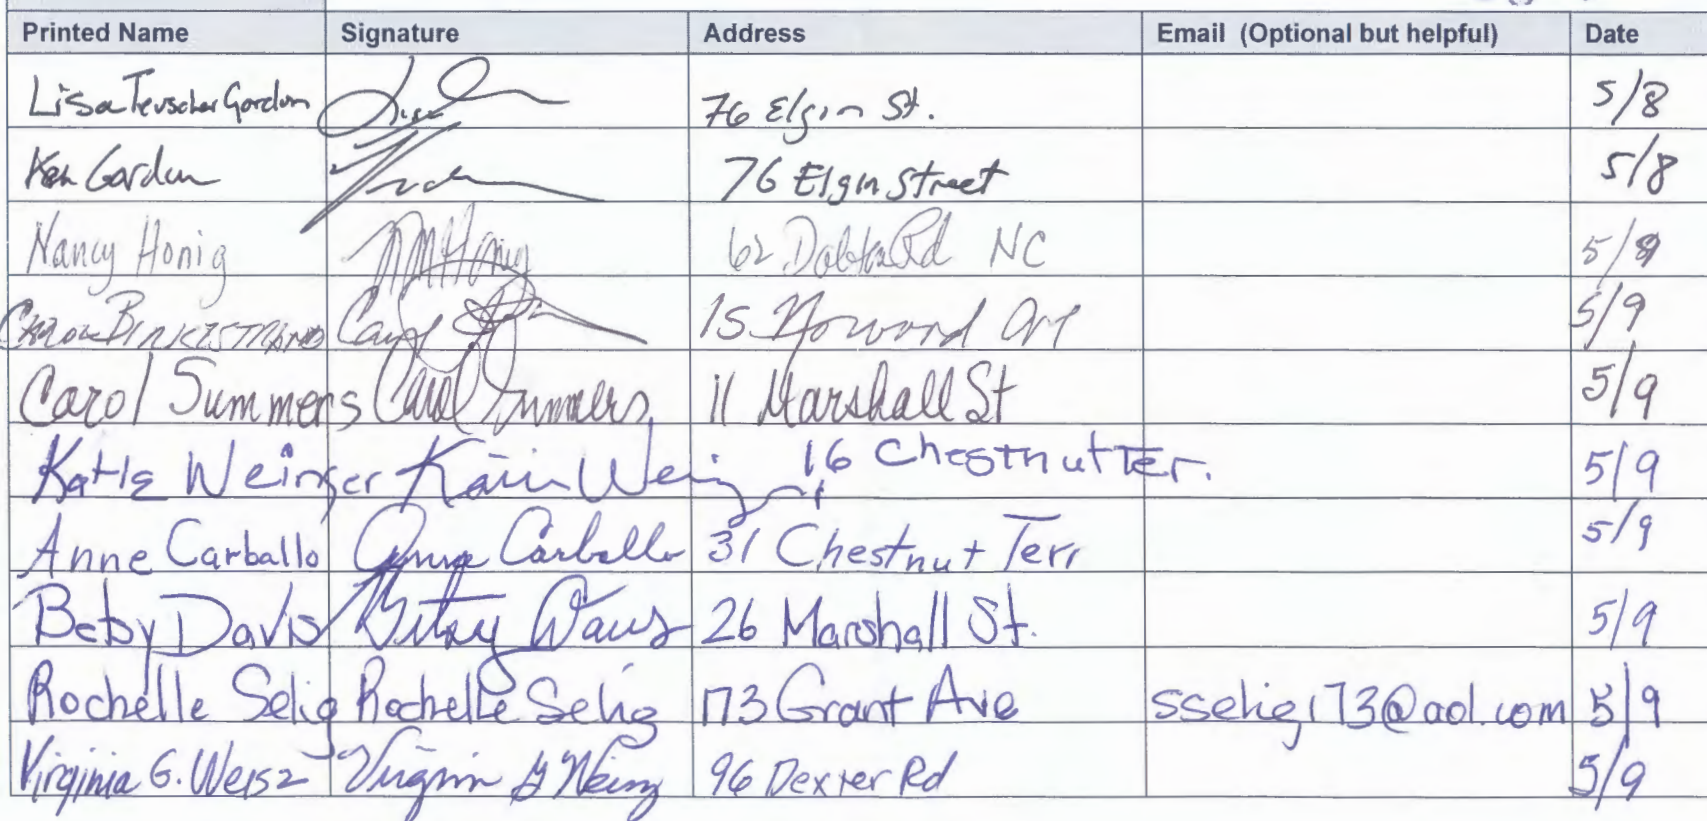 Printed Name Signature Address Email (Optional but helpful) Date
Lisa Teuscher Gordon 76 Elgin St. 5/8
Ken Gordon 76 Elgin Street 5/8
Nancy Honig NM Honig 62 Rd NC 5/9
Carol Carol 15 Ave 5/9
Carol Summers Carol Summers 11 Marshall St 5/9
Katie Weinger Katie Weinger 16 Chestnut Ter. 5/9
Anne Carballo Anne Carballo 31 Chestnut Terr 5/9
Betsy Davis Betsy Davis 26 Marshall St. 5/9
Rochelle Selig Rochelle Selig 173 Grant Ave sselig173@aol.com 5/9
Virginia G. Weisz Virginia G Weisz 96 Dexter Rd 5/9